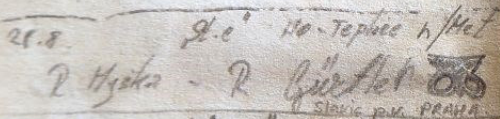 28.8. "Sk.e" Ho-Teplice n/Met
R Hyska - R Gürtler
Slavie p.k. PRAHA